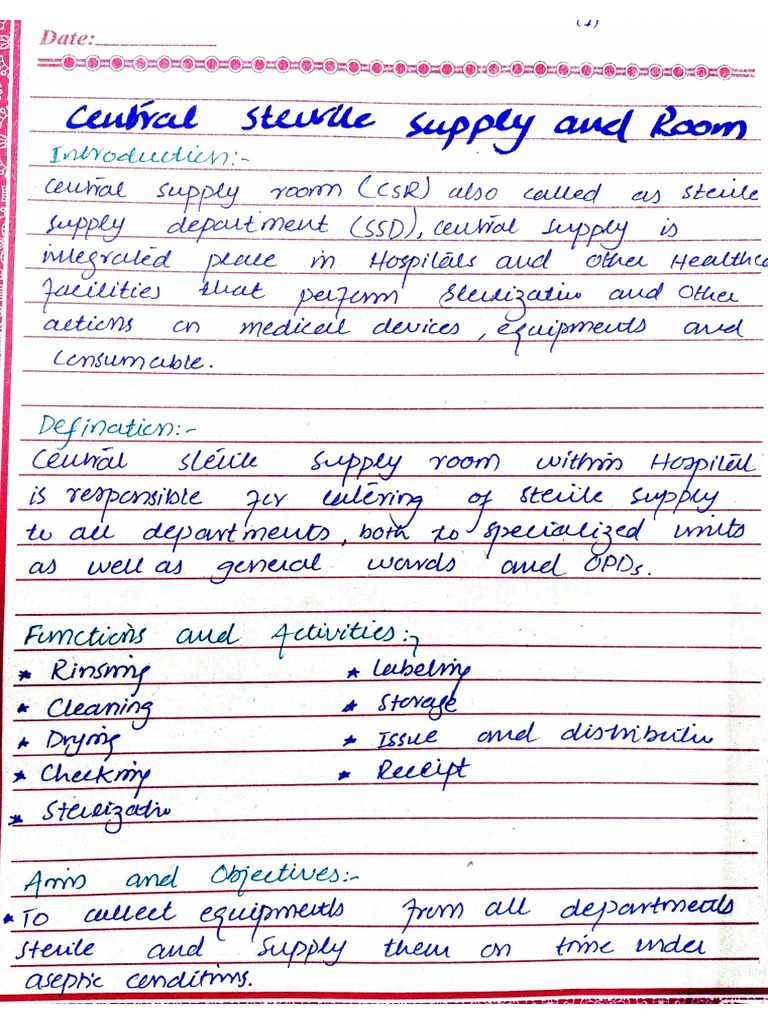 (1)
Date:
Central Sterile Supply and Room
Introduction:-
Central supply room (CSR) also called as sterile
supply department (SSD), central supply is
integrated place in Hospitals and other Healthca
facilities that perform Sterilization and other
actions on medical devices, equipments and
consumable.
Defination:-
Central sterile supply room within Hospital
is responsible for catering of sterile supply
to all departments, both to specialized units
as well as general wards and OPDs.
Functions and Activities:-
* Rinsing * Labeling
* Cleaning * Storage
* Drying * Issue and distribution
* Checking * Receipt
* Sterilization
Aims and Objectives:-
* To collect equipments from all departments
sterile and supply them on time under
aseptic conditions.